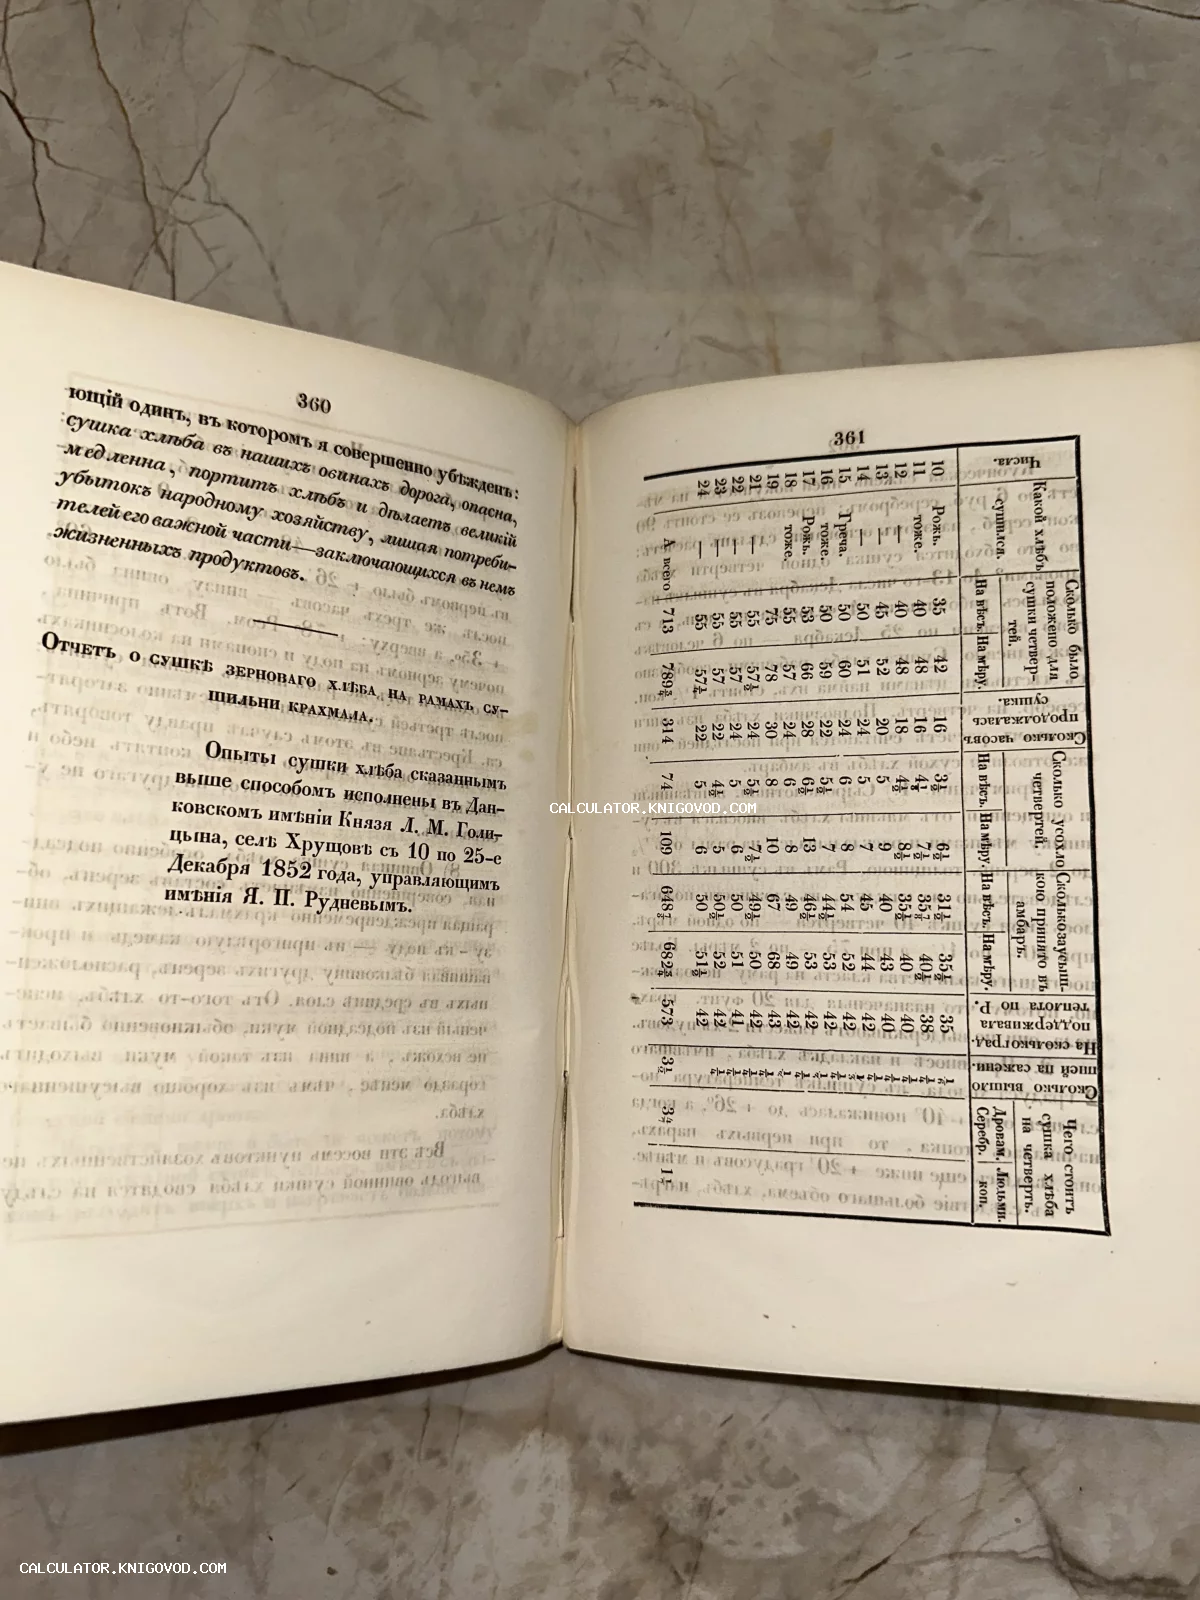 360
ющій одинъ, въ которомъ я совершенно убѣжденъ:
сушка хлѣба въ нашихъ овинахъ дорога, опасна,
медленна, портитъ хлѣбъ и дѣлаетъ великій
убытокъ народному хозяйству, лишая потреби-
телей его важной части—заключающихся въ немъ
жизненныхъ продуктовъ.
Отчетъ о сушкѣ зерноваго хлѣба на рамахъ су-
шильни крахмала.
Опыты сушки хлѣба сказаннымъ
выше способомъ исполнены въ Дан-
ковскомъ имѣніи Князя Л. М. Голи-
цына, селѣ Хрущовѣ съ 10 по 25-е
Декабря 1852 года, управляющимъ
имѣнія Я. П. Рудневымъ.
361
Числа.
Какой хлѣбъ
сушился.
Сколько было
положено для
сушки четвер-
тей.
На вѣсъ. На мѣру.
Сколько часовъ
продолжалась
сушка.
Сколько усохло
четвертей.
На вѣсъ. На мѣру.
Сколько засуш-
кою принято въ
амбаръ.
На вѣсъ. На мѣру.
На сколько град.
поддерживала
теплота по Р.
Сколько вышло
пшей па сажени.
Чего стоитъ
сушка хлѣба
на четверть.
Дровам. Людьми.
Серебр. коп.
10 Рожь. 35 42 16 3½ 6½ 31½ 35½ 35
11 тоже. 40 48 16 38
12 — 40 48 18 4½ 8½ 35½ 40 40
13 — 45 52 20 5 9 40 43 40
14 — 50 51 24 5 7 45 44 42
15 Греча. 50 60 24 6 8 54 52 42
16 тоже. 50 59 22 5½ 7 44½ 53 42
17 Рожь. 53 66 28 6½ 13 46½ 53 42
18 тоже. 55 57 24 6 8 49 49 42
19 75 78 30 8 10 67 68 43
21 — 55 57½ 24 5½ 7½ 49½ 50 42
22 — 55 57 24 5 6 50 51 41
23 — 55 57 22 4½ 5 50½ 52 42
24 — 55 57¼ 22 5 6 50 51½ 42
А всего 713 789¾ 314 74 109 573 3½
CALCULATOR.KNIGOVOD.COM
CALCULATOR.KNIGOVOD.COM